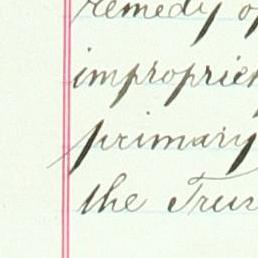 remedy of
impropriet
primary
the Trus